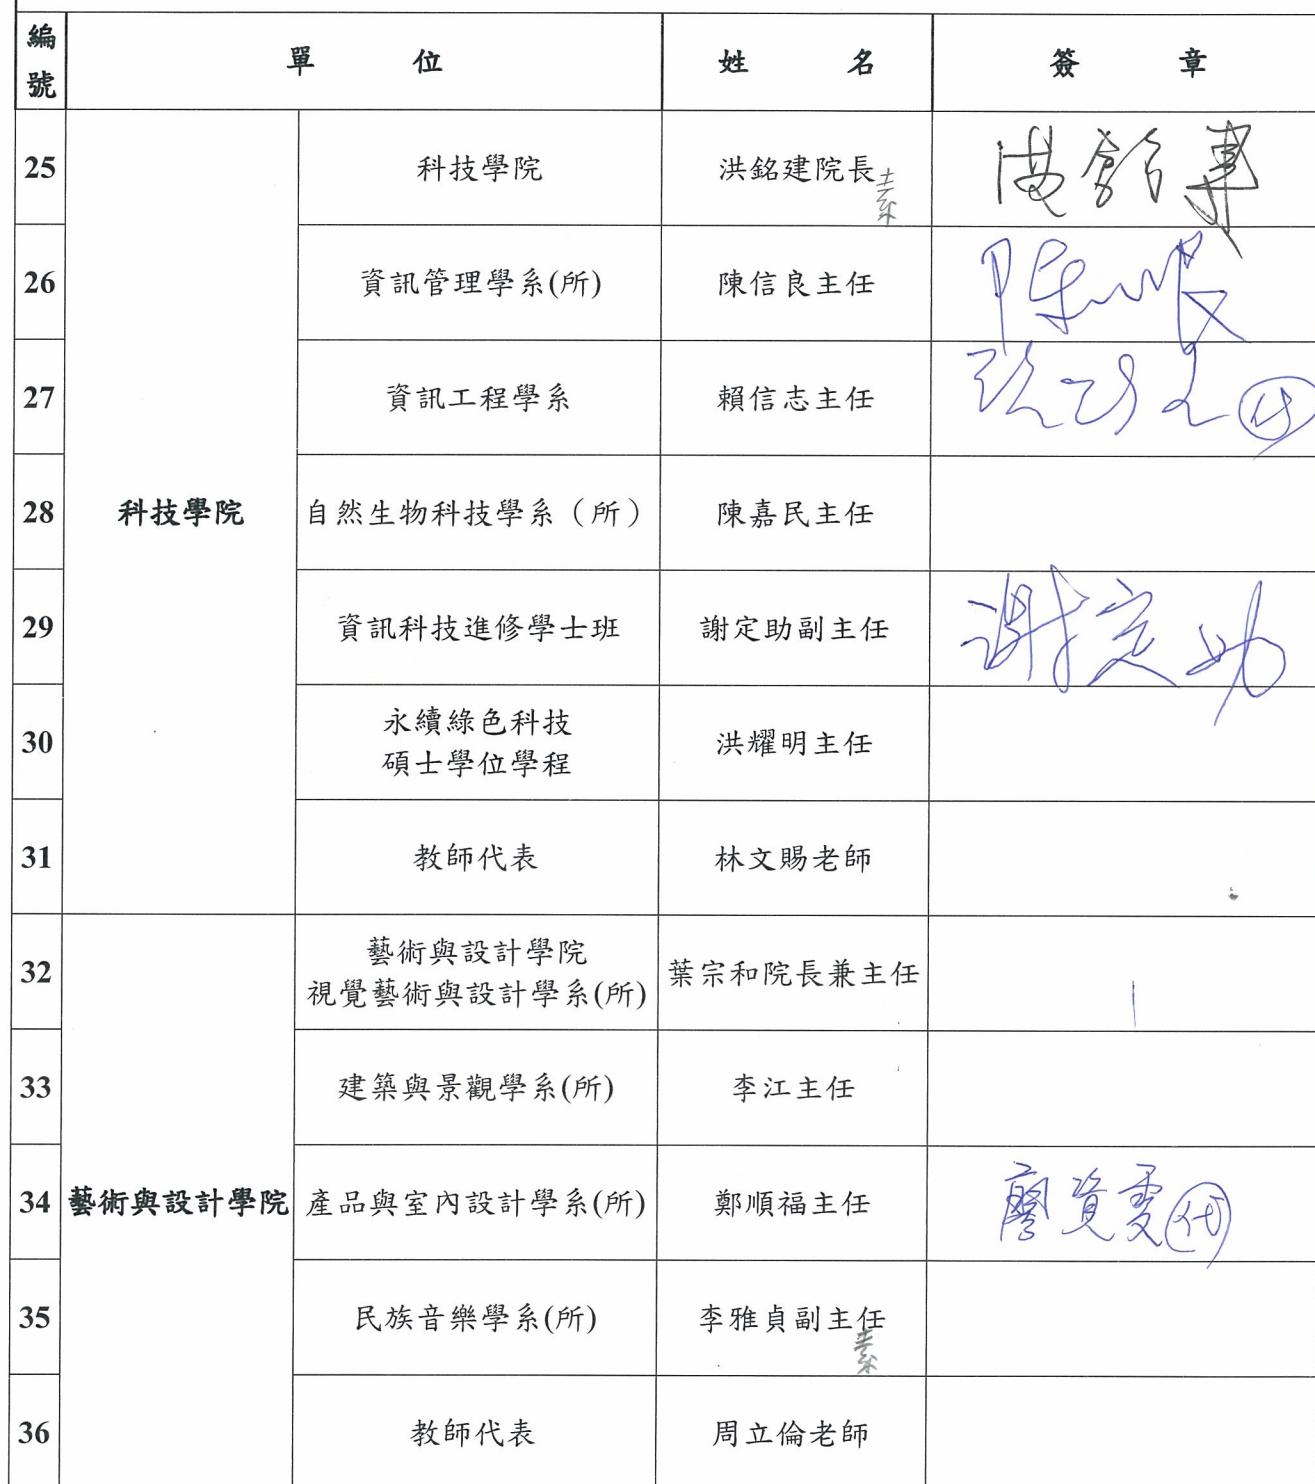 編號 單位 姓名 簽章
25 科技學院 洪銘建院長 素
26 資訊管理學系(所) 陳信良主任
27 資訊工程學系 賴信志主任 代
28 科技學院 自然生物科技學系（所） 陳嘉民主任
29 資訊科技進修學士班 謝定助副主任 謝定助
30 永續綠色科技
碩士學位學程 洪耀明主任
31 教師代表 林文賜老師
32 藝術與設計學院
視覺藝術與設計學系(所) 葉宗和院長兼主任
33 建築與景觀學系(所) 李江主任
34 藝術與設計學院 產品與室內設計學系(所) 鄭順福主任 廖資雯 代
35 民族音樂學系(所) 李雅貞副主任 素
36 教師代表 周立倫老師